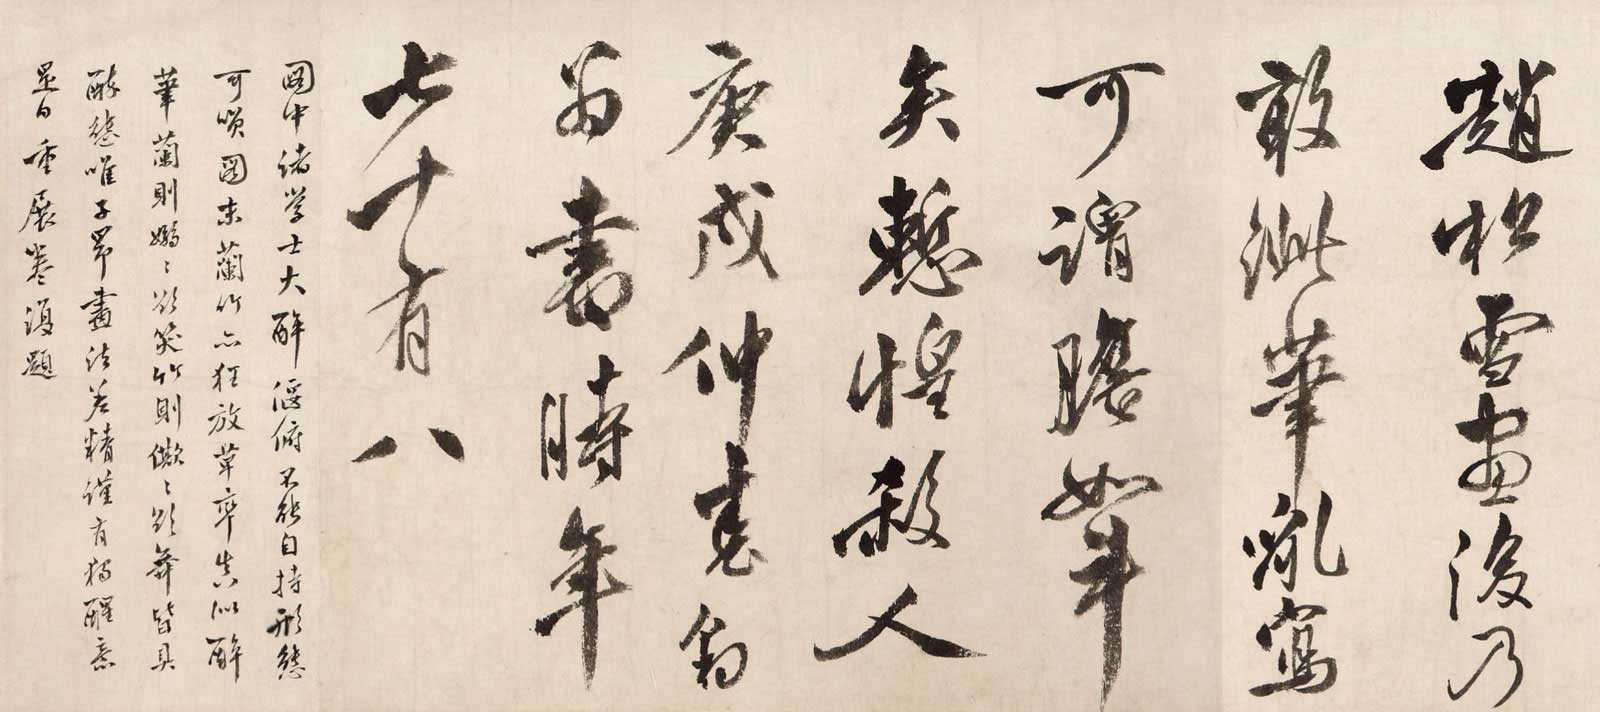 趙松雪畫後乃
敢泚筆亂寫
可謂膽如斗
矣慙惶殺人
庚戌仲春翁
萬書時年
七十有八
圖中諸學士大醉偃俯不能自持形態
可嘆圖末蘭竹亦狂放草率真似醉
筆蘭則嫋〻欲笑竹則僛〻欲舞皆具
醉態唯子昂畫法差精謹有獨醒意
是日重展卷復題